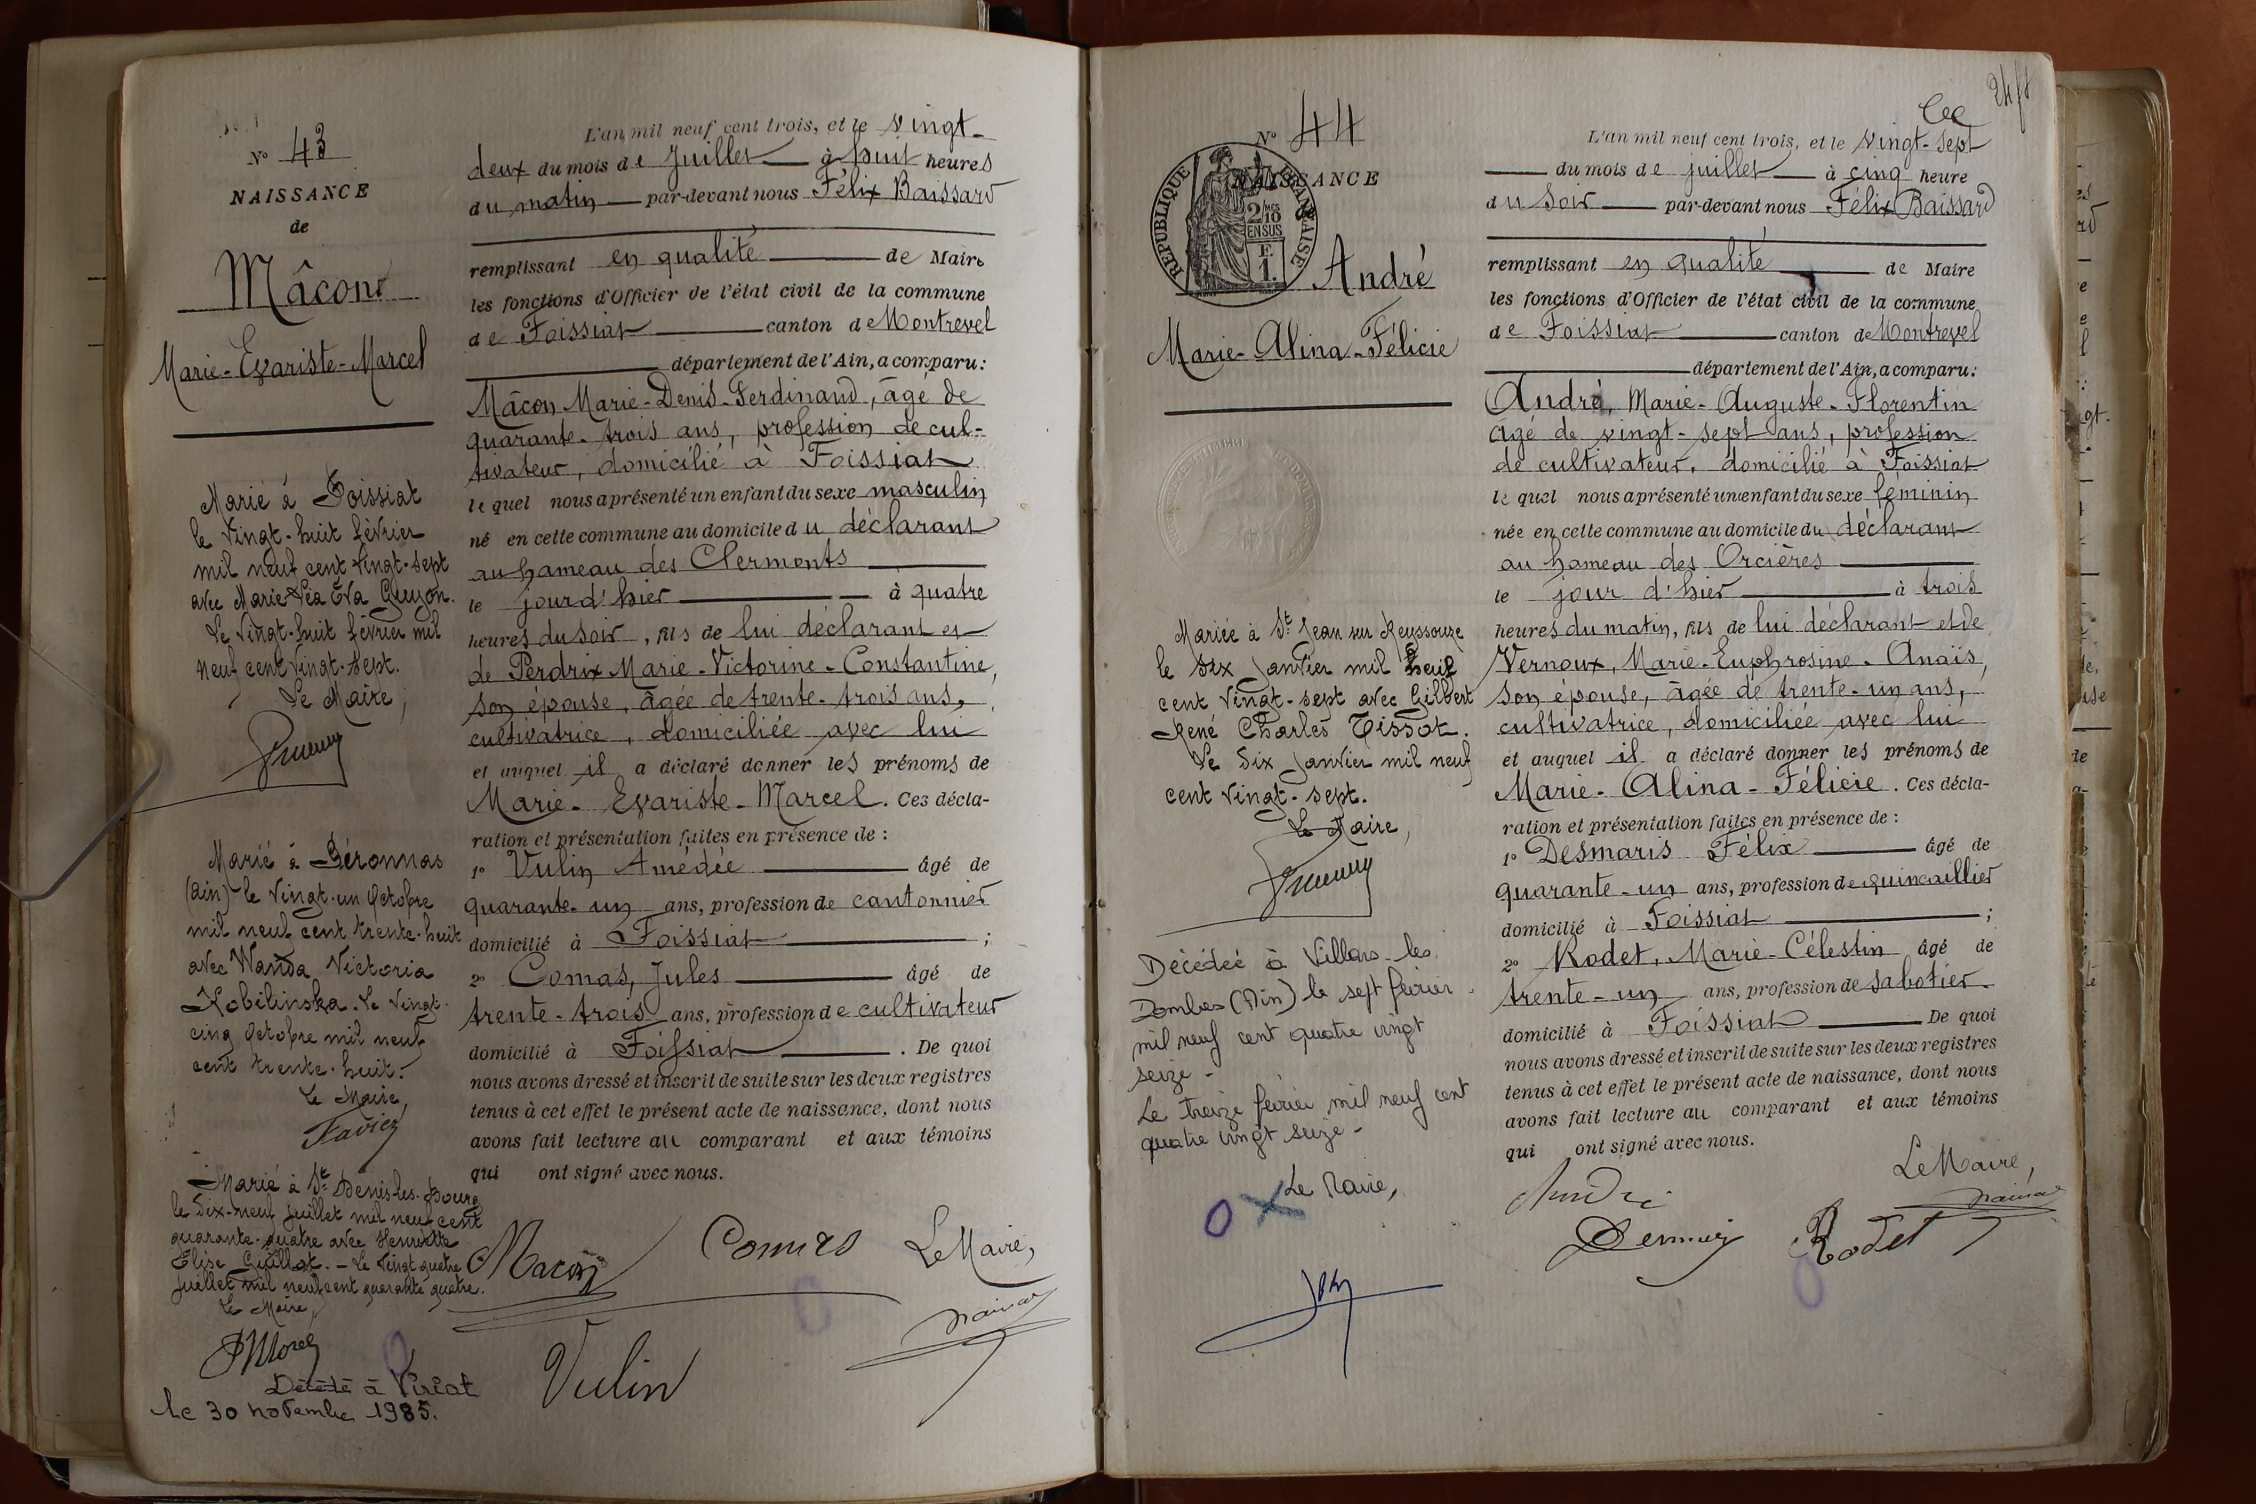 N° 43
NAISSANCE
de
Mâcon
Marie-Evariste-Marcel
Marié à Foissiat
le vingt-huit février
mil neuf cent vingt-sept
avec Marie Léa Eva Guyon.
Le vingt-huit février mil
neuf cent vingt-sept.
Le Maire,
Marié à Péronnas
(Ain) le vingt-un Octobre
mil neuf cent trente-huit
avec Wanda Victoria
Kobilinska. Le vingt-
cinq Octobre mil neuf
cent trente-huit.
Le Maire,
Favier
Marié à St Denis-les-Bourg
le dix-neuf juillet mil neuf cent
quarante-quatre avec Henriette
Elise Guillot. - Le vingt quatre
juillet mil neuf cent quarante quatre.
Le Maire,
PMorel
Décédé à Viriat
le 30 novembre 1985.
L'an mil neuf cent trois, et le vingt-
deux du mois de juillet à huit heures
du matin par-devant nous Félix Baissard
remplissant en qualité de Maire
les fonctions d'Officier de l'état civil de la commune
de Foissiat canton de Montrevel
département de l'Ain, a comparu:
Mâcon Marie-Denis-Ferdinand, âgé de
quarante-trois ans, profession de cul-
tivateur, domicilié à Foissiat
lequel nous a présenté un enfant du sexe masculin
né en cette commune au domicile du déclarant
au hameau des Clermonts
le jour d'hier à quatre
heures du soir, fils de lui déclarant et
de Perdrix Marie-Victorine-Constantine,
son épouse, âgée de trente-trois ans,
cultivatrice, domiciliée avec lui
et auquel il a déclaré donner les prénoms de
Marie-Evariste-Marcel. Ces décla-
ration et présentation faites en présence de :
1° Vulin Amédée âgé de
quarante-un ans, profession de cantonnier
domicilié à Foissiat ;
2° Comas, Jules âgé de
trente-trois ans, profession de cultivateur
domicilié à Foissiat. De quoi
nous avons dressé et inscrit de suite sur les deux registres
tenus à cet effet le présent acte de naissance, dont nous
avons fait lecture au comparant et aux témoins
qui ont signé avec nous.
Macon Comas Le Maire,
Vulin
24/8
N° 44
NAISSANCE
REPUBLIQUE FRANÇAISE
2/10 MES
EN SUS
F.
1.
André
Marie-Alina-Félicie
Mariée à St Jean sur Reyssouze
le six janvier mil neuf
cent vingt-sept avec Gilbert
René Charles Tissot.
Le six janvier mil neuf
cent vingt-sept.
Le Maire,
Décédée à Villars-les-
Dombes (Ain) le sept février
mil neuf cent quatre vingt
seize -
Le treize février mil neuf cent
quatre vingt seize -
Le Maire,
L'an mil neuf cent trois, et le vingt-sept
du mois de juillet à cinq heure
du soir par-devant nous Félix Baissard
remplissant en qualité de Maire
les fonctions d'Officier de l'état civil de la commune
de Foissiat canton de Montrevel
département de l'Ain, a comparu:
André, Marie-Auguste-Florentin
âgé de vingt-sept ans, profession
de cultivateur, domicilié à Foissiat
lequel nous a présenté un enfant du sexe féminin
née en cette commune au domicile du déclarant
au hameau des Orcières
le jour d'hier à trois
heures du matin, fils de lui déclarant et de
Vernoux, Marie-Euphrosine-Anaïs,
son épouse, âgée de trente-un ans,
cultivatrice, domiciliée avec lui
et auquel il a déclaré donner les prénoms de
Marie-Alina-Félicie. Ces décla-
ration et présentation faites en présence de :
1° Desmaris Félix âgé de
quarante-un ans, profession de quincaillier
domicilié à Foissiat ;
2° Rodet, Marie-Célestin âgé de
trente-un ans, profession de sabotier
domicilié à Foissiat De quoi
nous avons dressé et inscrit de suite sur les deux registres
tenus à cet effet le présent acte de naissance, dont nous
avons fait lecture au comparant et aux témoins
qui ont signé avec nous.
Le Maire,
André
Rodet